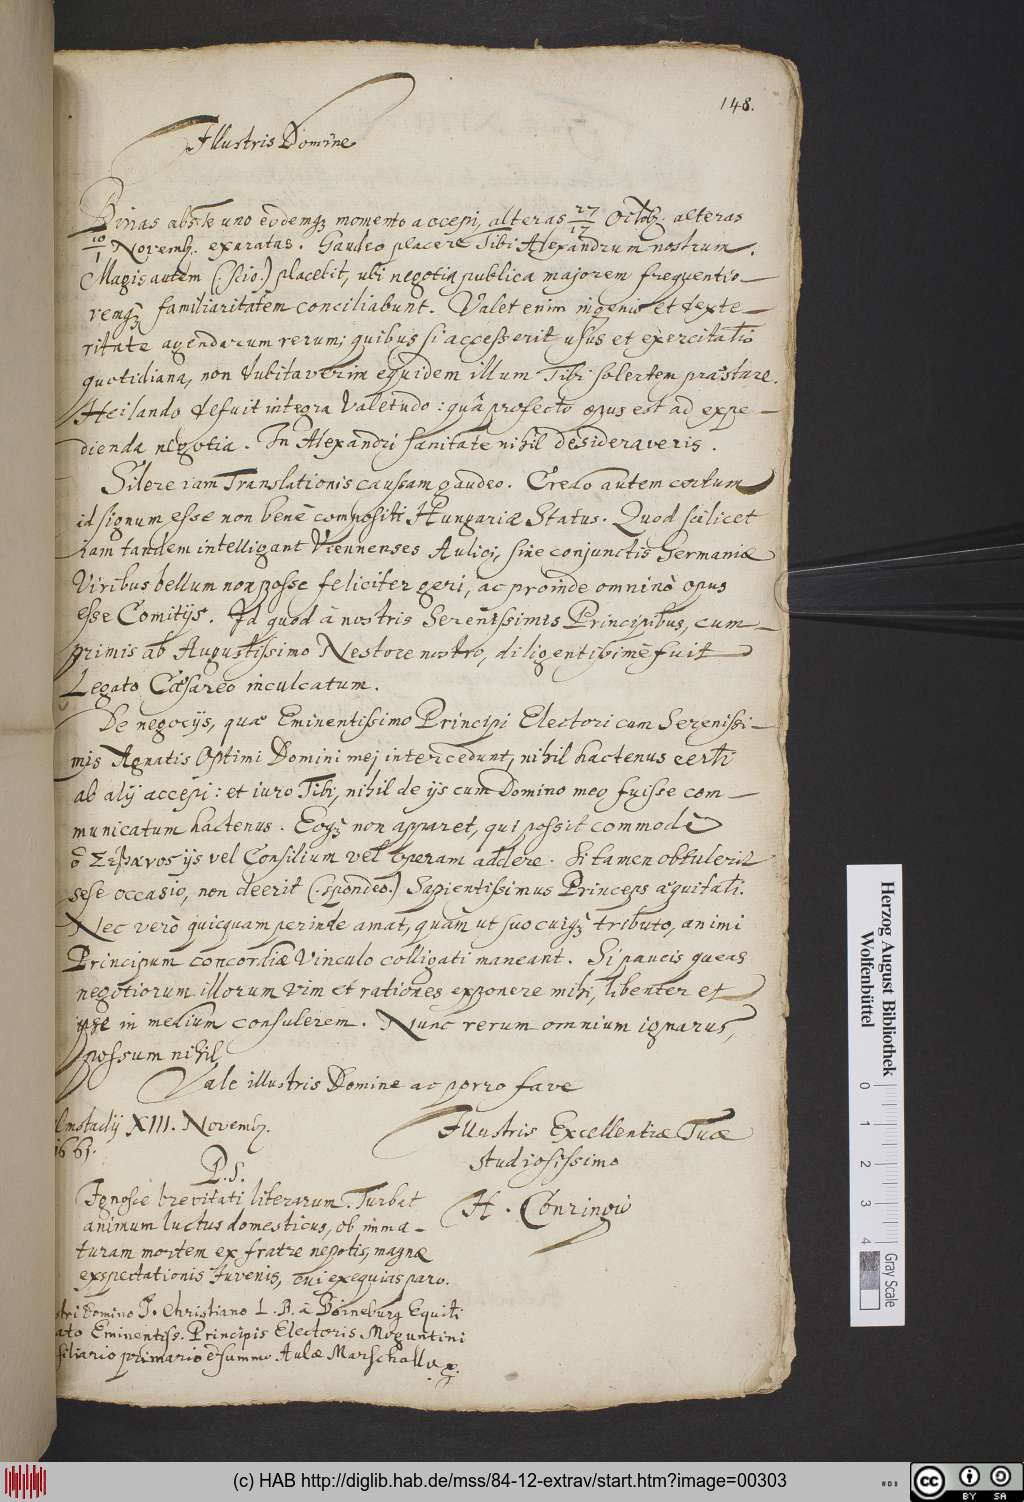 148.
Illustris Domine
Binas abs Te uno eodemq; momento accepi, alteras 27/17 Octob: alteras
10/1 Novemb. exaratas. Gaudeo placere Tibi Alexandrum nostrum.
Magis autem (scio) placebit, ubi negotia publica majorem frequentio-
remq; familiaritatem conciliabunt. Valet enim ingenio et dexte-
ritate agendarum rerum; quibus si accesserit usus et exercitatio
quotidiana, non dubitaverim equidem illum Tibi solertem præstare.
Heilando defuit integra valetudo: quâ profecto opus est ad expe-
dienda negotia. In Alexandri sanitate nihil desideraveris.
Silere iam Translationis causam gaudeo. Credo autem certum
id signum esse non benè compositi Hungariæ Status. Quod scilicet
iam tandem intelligant Viennenses Aulici, sine conjunctis Germaniæ
Viribus bellum non posse feliciter geri, ac proinde omninò opus
esse Comitijs. Id quod à nostris Serenissimis Principibus, cum-
primis ab Augustissimo Nestore nostro, diligentissimè fuit
Legato Cæsareo inculcatum.
De negocijs, quæ Eminentissimo Principi Electori cum Serenissi-
mis Agnatis Optimi Domini mej intercedunt, nihil hactenus certi
ab alijs accepi: et iuro Tibi, nihil de ijs cum Domino meo fuisse com-
municatum hactenus. Eoq; non apparet, qui possit commodè
ijs vel Consilium vel operam addere. Si tamen obtulerit
sese occasio, non deerit (spondeo) Sapientissimus Princeps æquitati.
Nec verò quicquam perinde amat, quàm ut suo cuiq; tributo, animi
Principum concordiæ Vinculo colligati maneant. Si paucis queas
negotiorum illorum vim et rationes exponere mihi, libenter et
ipse in medium consulerem. Nunc rerum omnium ignarus,
possum nihil.
Vale illustris Domine ac porro fave
lmstadij XIII. Novemb.
1661.
Illustris Excellentiæ Tuæ
studiosissimo
H. Conringio
P.S.
Ignosce brevitati literarum. Turbat
animum luctus domesticus, ob imma-
turam mortem ex fratre nepotis, magnæ
exspectationis Iuvenis, cui exequias paro.
stri Domino J. Christiano L. B. à Boineburg Equiti
ato Eminentiss. Principis Electoris Moguntini
siliario primario et summo Aulæ Marschallo
Herzog August Bibliothek
Wolfenbüttel
0 1 2 3 4
Gray Scale
(c) HAB http://diglib.hab.de/mss/84-12-extrav/start.htm?image=00303
cc BY SA